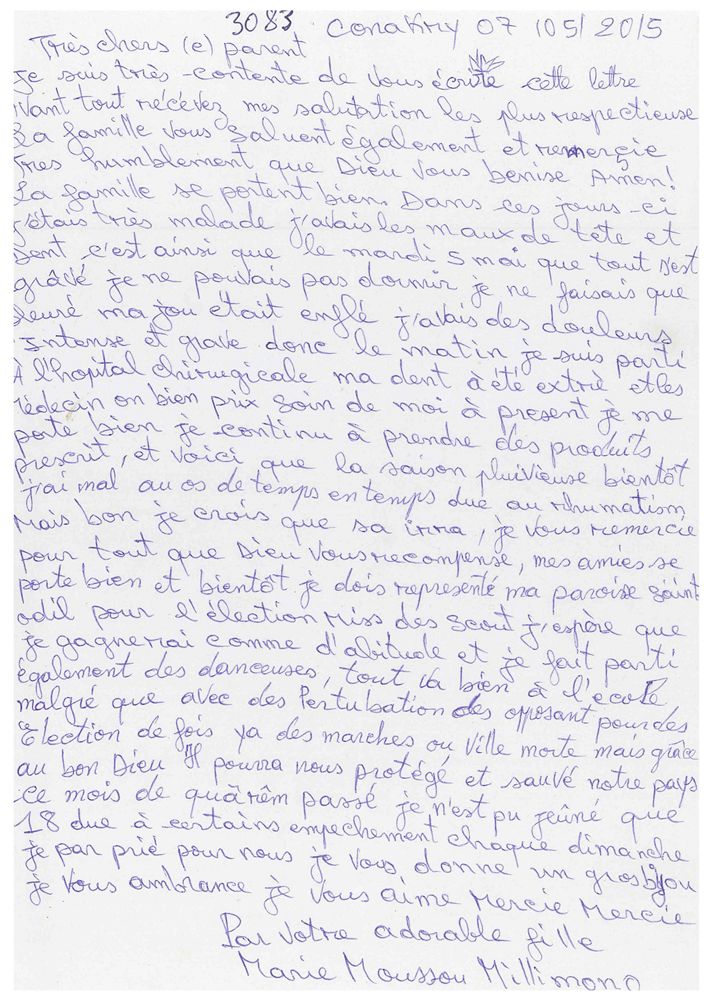 3083 Conakry 07 /05/ 2015
Très chers (e) parent
Je suis très contente de vous écrite cette lettre
Avant tout récévez mes salutation les plus respectieuse
La famille vous saluent également et remercie
très humblement que Dieu vous benise Amen!
La famille se portent bien. Dans ces jours-ci
j'étais très malade j'avais les maux de tête et
Dent c'est ainsi que le mardi 5 mai que tout s'est
grâvé je ne pouvais pas dormir je ne faisais que
pleuré ma jou était enflé j'avais des douleurs
Intense et grave donc le matin je suis parti
À l'hopital chirugicale ma dent à été extriè et les
médecin on bien prix soin de moi à present je me
porte bien je continu à prendre des produits
prescrit, et voici que la saison pluivieuse bientôt
j'ai mal au os de temps en temps due au rhumatism
Mais bon je crois que sa irra, je vous remercie
pour tout que Dieu vous recompense, mes amies se
porte bien et bientôt je dois representé ma paroise saint
odil pour l'élection Miss des scout j'espère que
je gagnerrai comme d'abitude et je fait parti
également des danceuses, tout va bien à l'ecole
malgré que avec des Pertubation des opposant pour des
Election de fois ya des marches ou ville morte mais grâce
au bon Dieu Il pourra nous protégé et sauvé notre pays
Ce mois de quârêm passé je n'est pu jeûné que
18 due à certains empechement chaque dimanche
je par prié pour nous je vous donne un gros bijou
je vous ambrance je vous aime Mercie Mercie
Par votre adorable fille
Marie Moussou Millimono